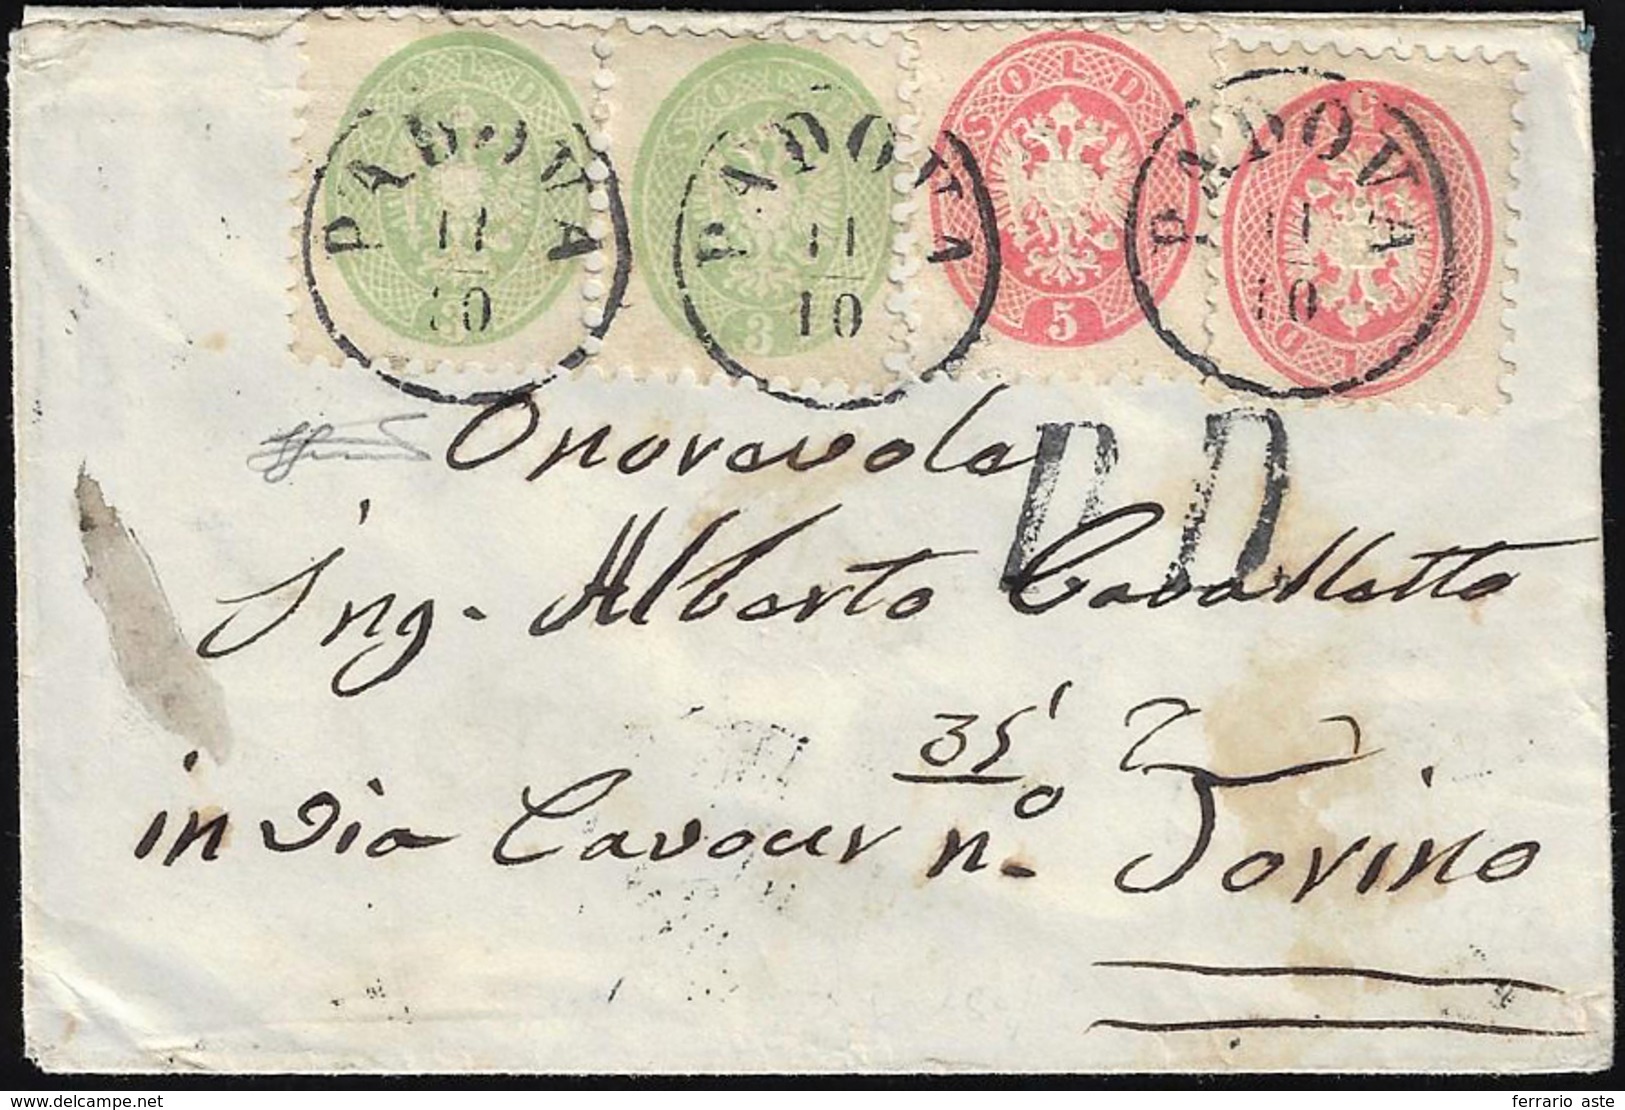 SOLDI 3
SOLDI 3
SOLDI 5
SOLDI 5
PADOVA 11/10
PADOVA 11/10
PADOVA 11/10
P.D.
Onorevole
Ing. Alberto Cavalletto
35
in via Cavour n.o Torino
ferrario aste